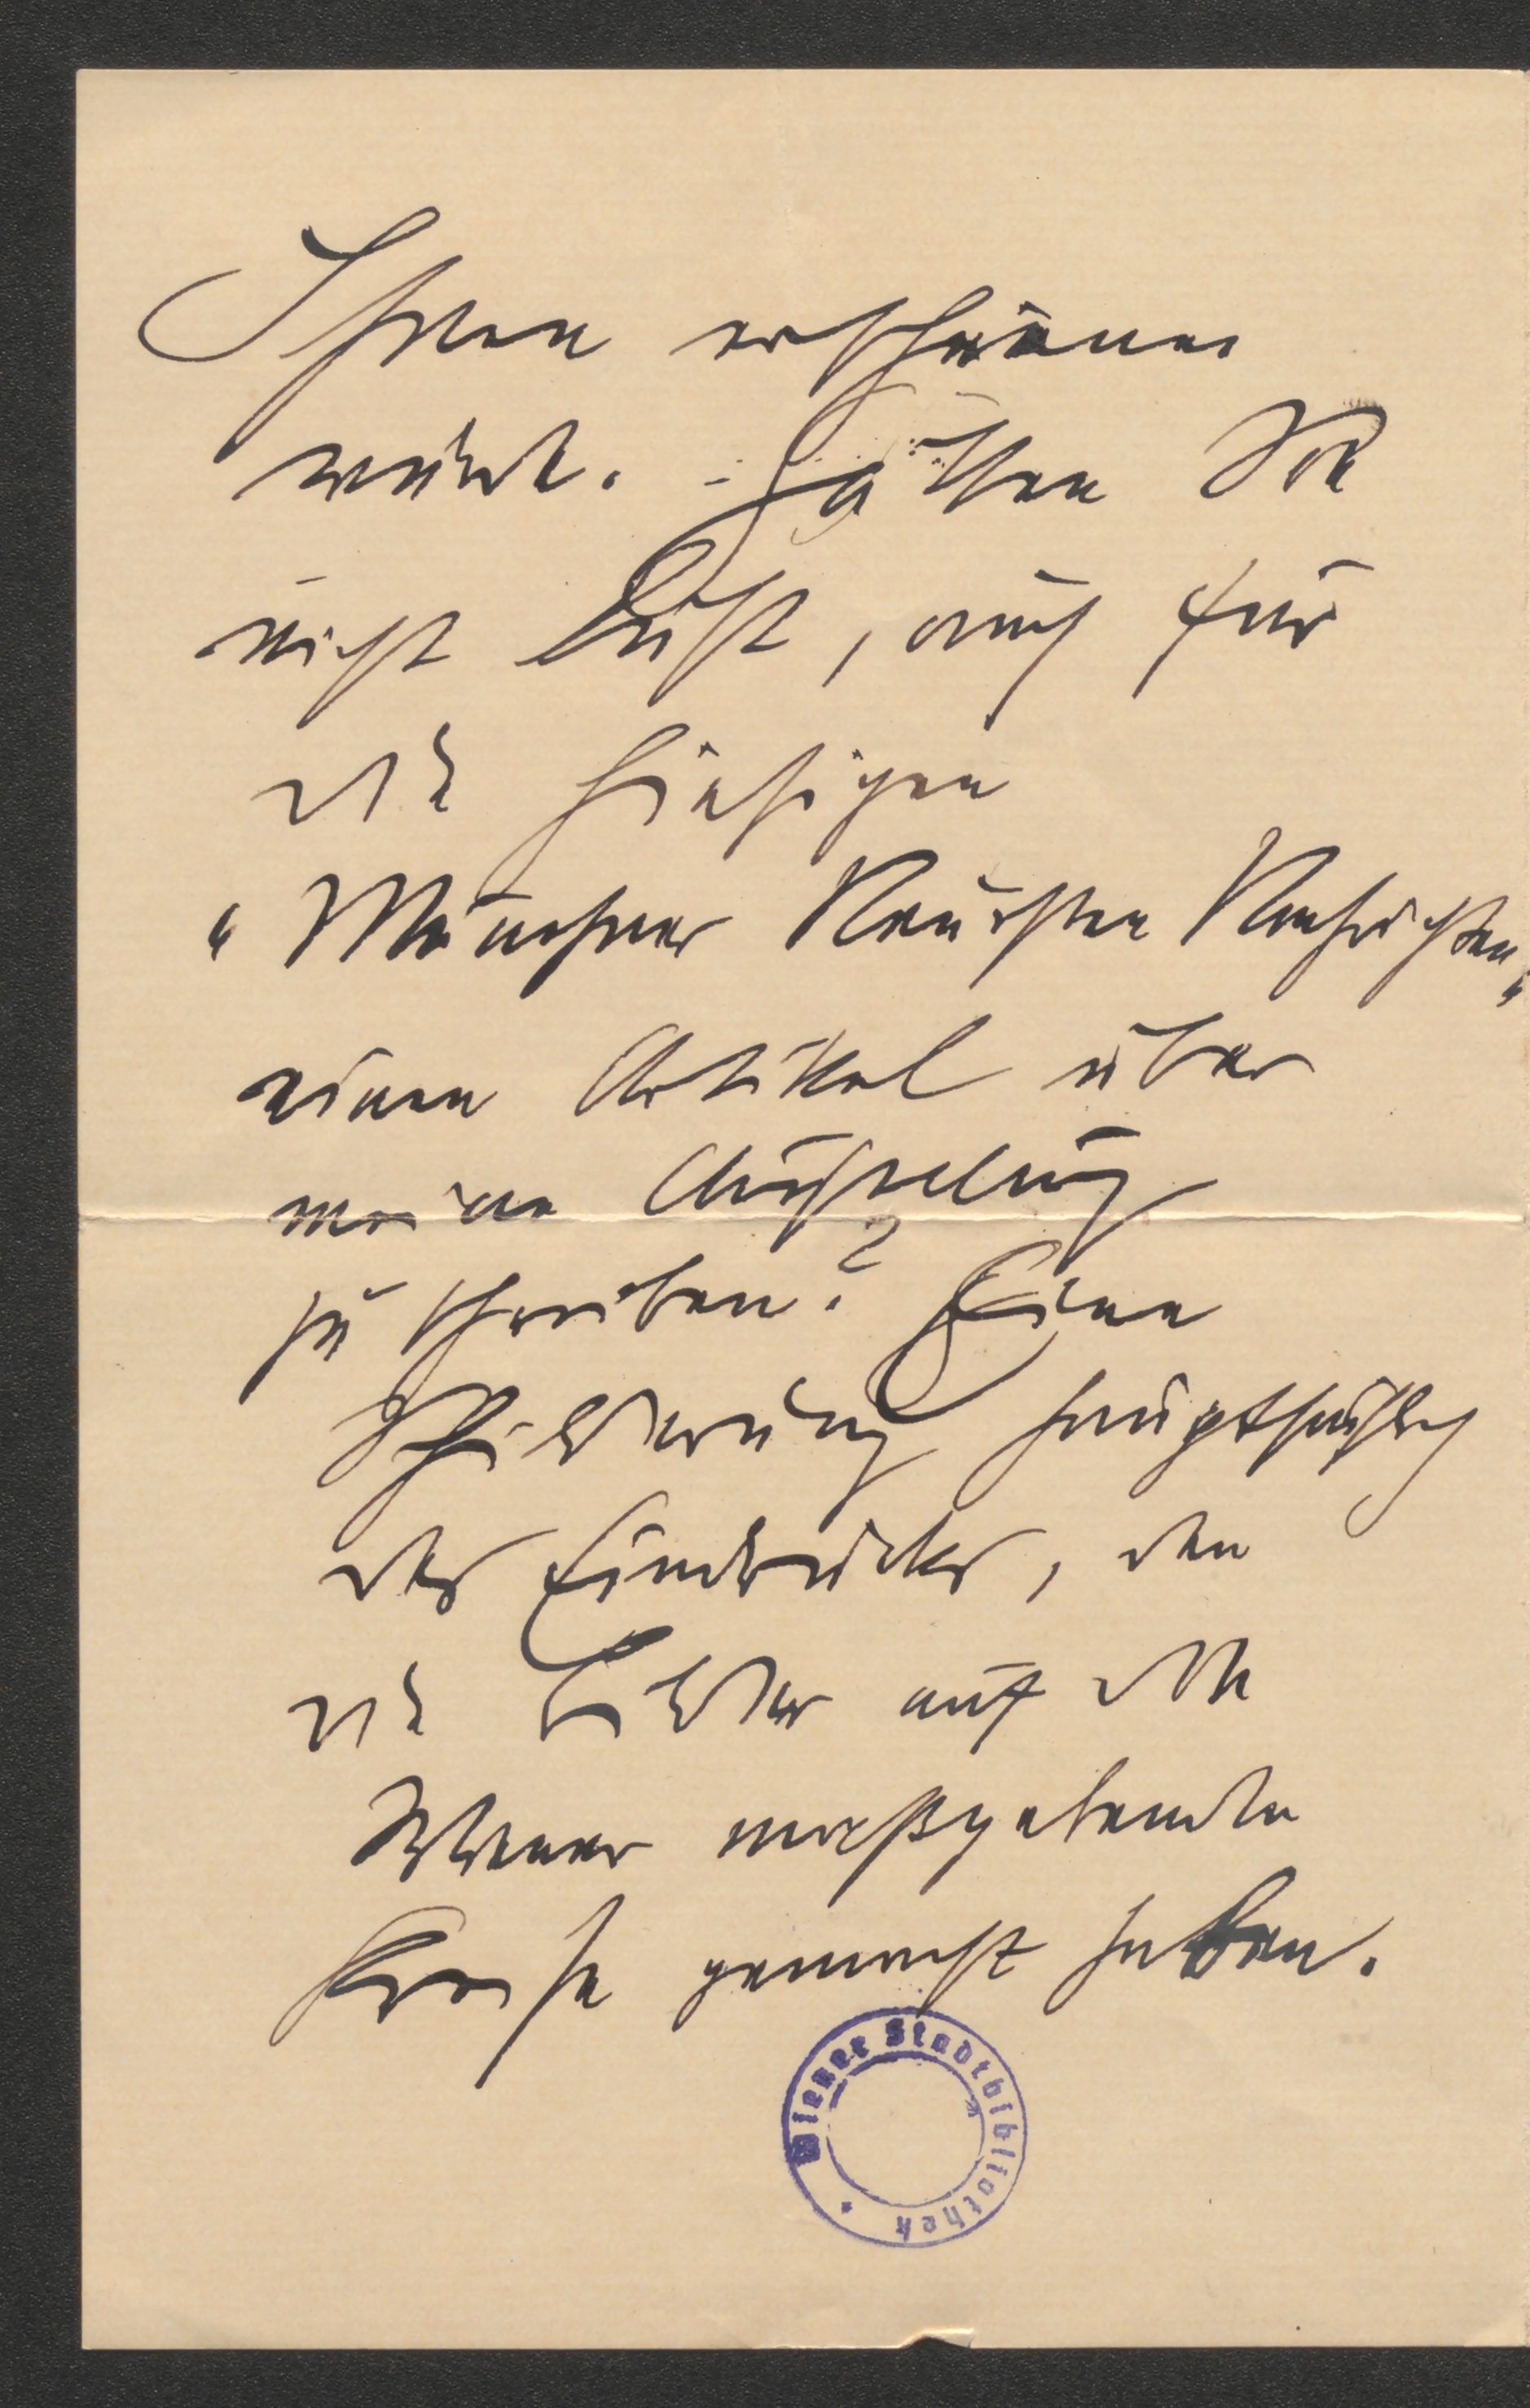 Ihnen erscheinen
würde. - Hätten Sie
nicht Lust, auch für
die hiesigen
"Münchner Neuesten Nachrichten"
einen Artikel über
meine Ausstellung
zu schreiben? Eine
Schilderung hauptsächlich
des Eindrucks, den
die Bilder auf die
Wiener maßgebenden
Kreise gemacht haben.
Wiener Stadtbibliothek